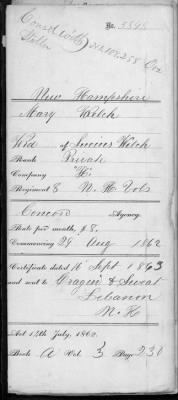 No.
New Hampshire
Mary Welch
Wid of Lucius Welch
Rank Private
Company "K"
Regiment 8 N. H. Vols
Concord Agency.
Rate per month, $8.
Commencing 29 Aug 1862
Certificate dated 16 Sept 1863
and sent to Cragin & Sweat
Lebanon
N. H
Act 14th July, 1862.
Book A Vol. 3 Page 230